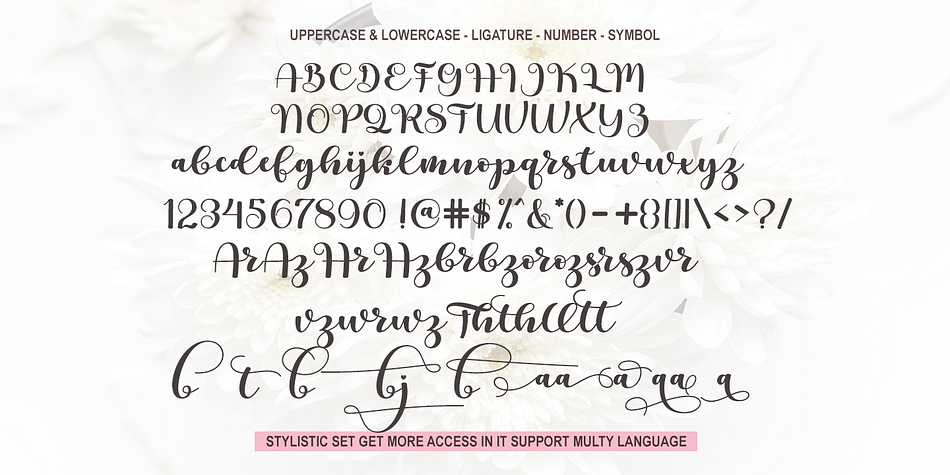 UPPERCASE & LOWERCASE - LIGATURE - NUMBER - SYMBOL
ABCDEFGHIJKLM
NOPQRSTUVWXYZ
abcdefghijklmnopqrstuvwxyz
1234567890 !@#$%^&*()-+{}[]|\<>?/
ArAzHrHzbrbzorozsrszvr
vzwrwzThthlltt
b t b bj b aa a qa q
STYLISTIC SET GET MORE ACCESS IN IT SUPPORT MULTY LANGUAGE